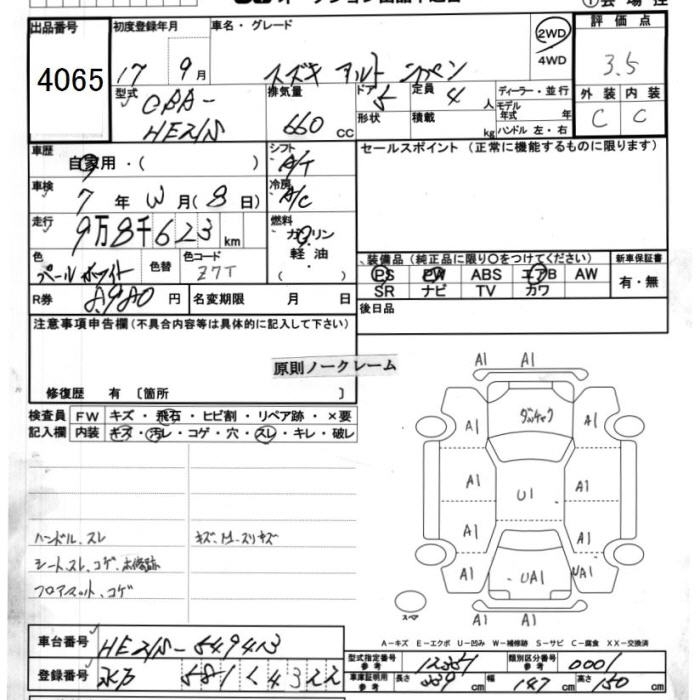 出品番号
4065
初度登録年月
17 9月
車名・グレード
スズキ アルト ラパン
2WD
4WD
評価点
3.5
外装 内装
C C
型式
CBA-
HE21S
排気量
660 cc
ドア
5
定員
4 人
形状
積載
kg
ディーラー・並行
モデル年式 年
ハンドル 左・右
車歴
自家用・( )
シフト
A/T
車検
7年 月(8日)
冷房
A/C
走行
9万8千623km
燃料
ガソリン
軽油
( )
色
パールホワイト
色替
色コード
Z7T
R券
8,980円
名変期限 月 日
セールスポイント(正常に機能するものに限ります)
装備品(純正品に限り〇をつけてください)
PS PW ABS エアB AW
SR ナビ TV カワ
新車保証書
有・無
後日品
注意事項申告欄(不具合内容等は具体的に記入して下さい)
原則ノークレーム
修復歴 有 〔箇所 〕
検査員記入欄
FW キズ・飛石・ヒビ割・リペア跡・×要
内装 キズ・汚レ・コゲ・穴・スレ・キレ・破レ
ハンドル、スレ
シート、スレ、コゲ、
フロアマット、コゲ
A1 A1
A1 A1
A1 U1 A1
A1 A1
A1 UA1 UA1
A1 A1
スペア
A-キズ E-エクボ U-凹み W-補修跡 S-サビ C-腐食 XX-交換済
車台番号
HE21S-549413
登録番号
581 く 4322
型式指定番号 参考
類別区分番号 参考
0001
車庫証明 参考
長さ 339cm
幅 147cm
高さ 150cm